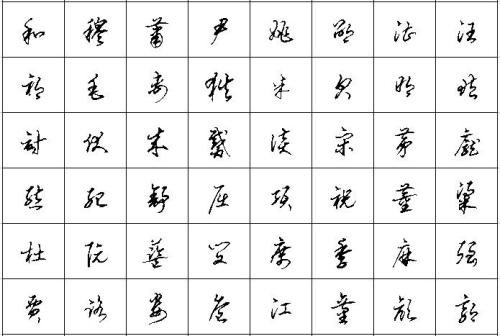 和穆蕭尹姚邵湛汪
祁毛禹狄米贝明臧
計伏成戴谈宋茅龐
熊纪舒屈项祝董梁
杜阮蓝闵席季麻强
贾路娄危江童颜郭